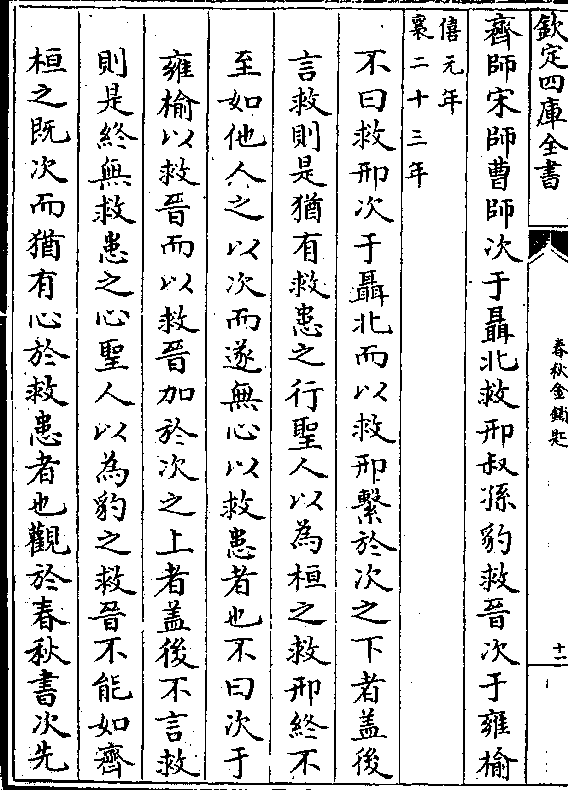 欽定四庫全書
春秋金鎖匙
十一
齊師宋師曹師次于聶北救邢叔孫豹救晉次于雍榆
僖元年
襄二十三年
不曰救邢次于聶北而以救邢繫於次之下者盖後
言救則是猶有救患之行聖人以為桓之救邢終不
至如他人之以次而遂無心以救患者也不曰次于
雍榆以救晉而以救晉加於次之上者盖後不言救
則是終無救患之心聖人以為豹之救晉不能如齊
桓之既次而猶有心於救患者也觀於春秋書次先